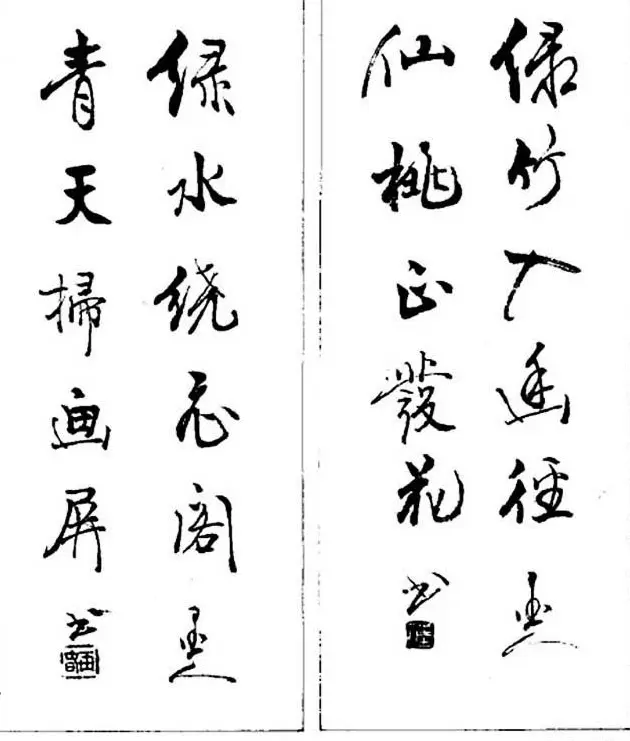 绿竹入幽径
仙桃正發花
书
绿水绕阁
青天掃画屏
书